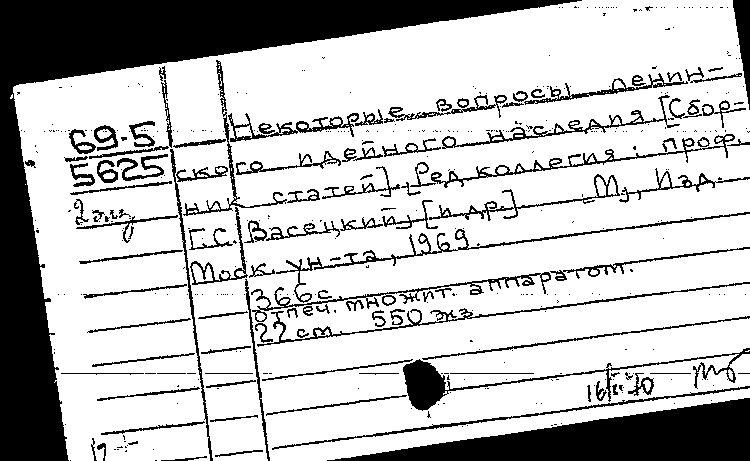 69-5
5625
2 экз
Некоторые вопросы ленин-
ского идейного наследия. [Сбор-
ник статей]. [Ред. коллегия: проф.
Г.С. Васецкий, [и др.] М., Изд.
Моск. ун-та, 1969.
366 с.
отпеч. множит. аппаратом.
22 см. 550 экз.